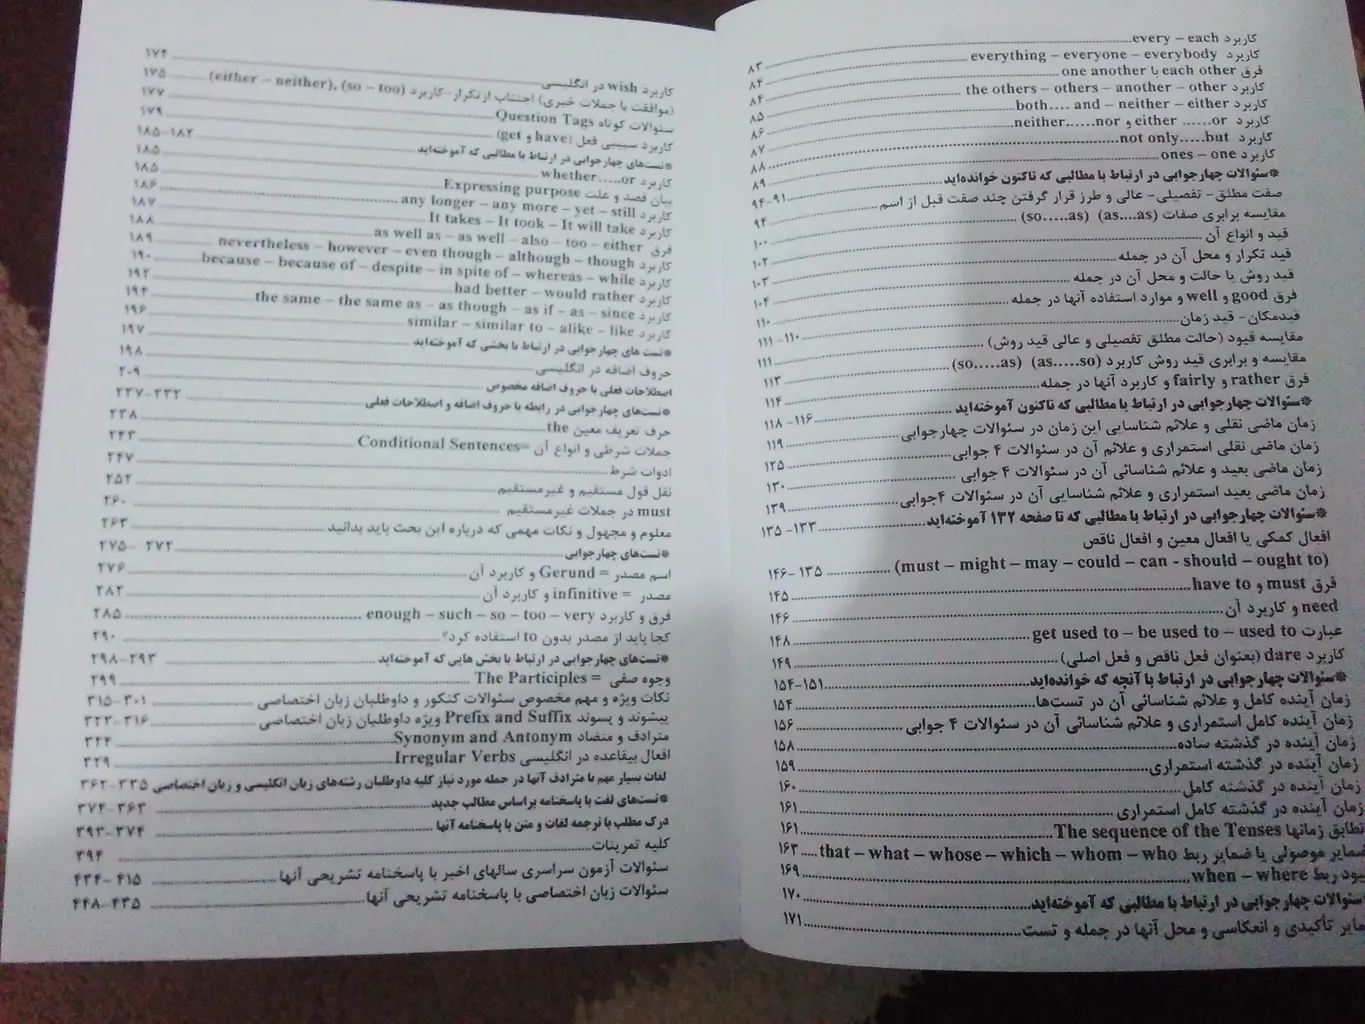 کاربرد every – each
کاربرد everything – everyone – everybody ۸۳
فرق each other با one another ۸۴
کاربرد the others – others – another – other ۸۴
کاربرد both.... and – neither – either ۸۵
کاربرد either ......or و neither......nor ۸۶
کاربرد not only.....but ۸۷
کاربرد ones – one ۸۸
*سئوالات چهارجوابی در ارتباط با مطالبی که تاکنون خوانده‌اید ۸۹
صفت مطلق – تفضیلی – عالی و طرز قرار گرفتن چند صفت قبل از اسم ۹۱–۹۴
مقایسه برابری صفات (as....as) (so.....as) ۹۴
قید و انواع آن ۱۰۰
قید تکرار و محل آن در جمله ۱۰۲
قید روش یا حالت و محل آن در جمله ۱۰۳
فرق good و well و موارد استفاده آنها در جمله ۱۰۴
قیدمکان – قید زمان ۱۱۰
مقایسه قیود (حالت مطلق تفضیلی و عالی قید روش) ۱۱۰–۱۱۱
مقایسه و برابری قید روش کاربرد (as.....so) (so.....as) ۱۱۱
فرق rather و fairly و کاربرد آنها در جمله ۱۱۳
*سئوالات چهارجوابی در ارتباط با مطالبی که تاکنون آموخته‌اید ۱۱۴
زمان ماضی نقلی و علائم شناسایی این زمان در سئوالات چهارجوابی ۱۱۶–۱۱۸
زمان ماضی نقلی استمراری و علائم آن در سئوالات ۴ جوابی ۱۱۹
زمان ماضی بعید و علائم شناسائی آن در سئوالات ۴ جوابی ۱۲۵
زمان ماضی بعید استمراری و علائم شناسایی آن در سئوالات ۴جوابی ۱۳۰
*سئوالات چهارجوابی در ارتباط با مطالبی که تا صفحه ۱۳۲ آموخته‌اید ۱۳۳–۱۳۵
افعال کمکی یا افعال معین و افعال ناقص
(must – might – may – could – can - should – ought to) ۱۳۵–۱۴۶
فرق must و have to ۱۴۵
need و کاربرد آن ۱۴۶
عبارت get used to – be used to – used to ۱۴۸
کاربرد dare (بعنوان فعل ناقص و فعل اصلی) ۱۴۹
*سئوالات چهارجوابی در ارتباط با آنچه که خوانده‌اید ۱۵۱–۱۵۴
زمان آینده کامل و علائم شناسائی آن در تست‌ها ۱۵۴
زمان آینده کامل استمراری و علائم شناسائی آن در سئوالات ۴ جوابی ۱۵۶
زمان آینده در گذشته ساده ۱۵۸
زمان آینده در گذشته استمراری ۱۵۹
زمان آینده در گذشته کامل ۱۶۰
زمان آینده در گذشته کامل استمراری ۱۶۱
تطابق زمانها The sequence of the Tenses ۱۶۱
ضمایر موصولی یا ضمایر ربط that – what – whose – which – whom – who ۱۶۳
ربط when – where ۱۶۹
سئوالات چهارجوابی در ارتباط با مطالبی که آموخته‌اید ۱۷۰
تأکیدی و انعکاسی و محل آنها در جمله و تست ۱۷۱
کاربرد wish در انگلیسی ۱۷۴
(موافقت با جملات خبری) اجتناب از تکرار – کاربرد (so – too)، (either – neither) ۱۷۵
سئوالات کوتاه Question Tags ۱۷۷
کاربرد سببی فعل (have و get) ۱۷۹
*تست‌های چهارجوابی در ارتباط با مطالبی که آموخته‌اید ۱۸۲–۱۸۵
کاربرد whether.....or ۱۸۵
بیان قصد و علت Expressing purpose ۱۸۵
کاربرد any longer – any more – yet – still ۱۸۶
کاربرد It takes – It took – It will take ۱۸۷
فرق as well as – as well – also – too – either ۱۸۸
کاربرد nevertheless – however – even though – although – though ۱۸۹
کاربرد because – because of – despite – in spite of – whereas – while ۱۹۰
کاربرد had better – would rather ۱۹۲
کاربرد the same – the same as – as though – as if – as – since ۱۹۴
کاربرد similar – similar to – alike – like ۱۹۶
*تست های چهارجوابی در ارتباط با بخشی که آموخته‌اید ۱۹۷
حروف اضافه در انگلیسی ۱۹۸
اصطلاحات فعلی با حروف اضافه مخصوص ۲۰۹
*تست‌های چهارجوابی در رابطه با حروف اضافه و اصطلاحات فعلی ۲۳۲–۲۳۷
حرف تعریف معین the ۲۳۸
جملات شرطی و انواع آن =Conditional Sentences ۲۴۳
ادوات شرط ۲۴۷
نقل قول مستقیم و غیرمستقیم ۲۵۲
must در جملات غیرمستقیم ۲۶۰
معلوم و مجهول و نکات مهمی که درباره این بحث باید بدانید ۲۶۳
*تست‌های چهارجوابی ۲۷۲–۲۷۵
اسم مصدر = Gerund و کاربرد آن ۲۷۶
مصدر = infinitive و کاربرد آن ۲۸۲
فرق و کاربرد enough – such – so – too – very ۲۸۵
کجا باید از مصدر بدون to استفاده کرد؟ ۲۹۰
*تست‌های چهارجوابی در ارتباط با بخش هایی که آموخته‌اید ۲۹۳–۲۹۸
وجوه صفی = The Participles ۲۹۹
نکات ویژه و مهم مخصوص سئوالات کنکور و داوطلبان زبان اختصاصی ۳۰۱–۳۱۵
پیشوند و پسوند Prefix and Suffix ویژه داوطلبان زبان اختصاصی ۳۱۶–۳۲۳
مترادف و متضاد Synonym and Antonym ۳۲۴
افعال بیقاعده در انگلیسی Irregular Verbs ۳۲۹
لغات بسیار مهم با مترادف آنها در جمله مورد نیاز کلیه داوطلبان رشته‌های زبان انگلیسی و زبان اختصاصی ۳۳۵–۳۶۲
*تست‌های لغت با پاسخنامه براساس مطالب جدید ۳۶۳–۳۷۴
درک مطلب با ترجمه لغات و متن با پاسخنامه آنها ۳۷۴–۳۹۳
کلیه تمرینات ۳۹۴
سئوالات آزمون سراسری سالهای اخیر با پاسخنامه تشریحی آنها ۴۱۵–۴۳۴
سئوالات زبان اختصاصی با پاسخنامه تشریحی آنها ۴۳۵–۴۴۸